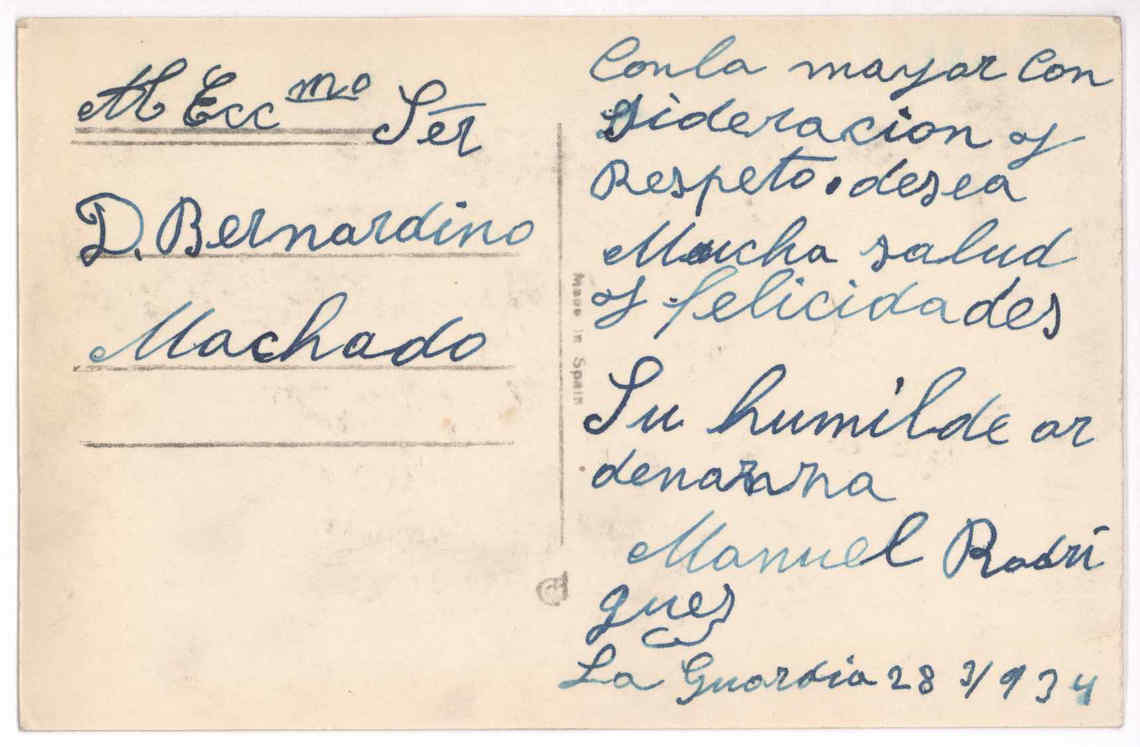 Al Ecc mo Ser
D. Bernardino
Machado
Made in Spain
Con la mayor Con
sideracion y
Respeto. desea
Mucha salud
y felicidades
Su humilde or
Manuel Rodri
gues
La Guardia 28 3/934